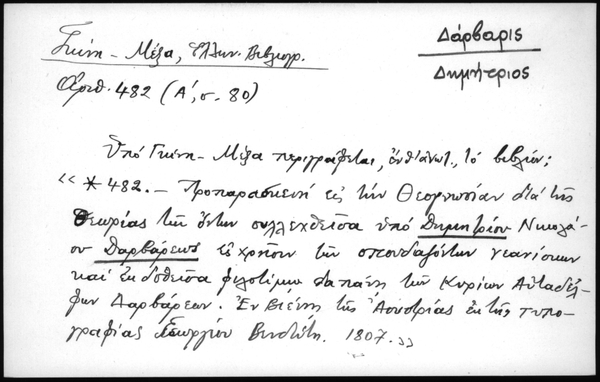 Γκίνη - Μέξα, Ἑλλην. Βιβλιογρ.
Δάρβαρις
Δημήτριος
Ἀριθ. 482 (Α΄, σ. 80)
Ὑπό Γκίνη - Μέξα περιγράφεται, ἔνθ' ἀνωτ., τό βιβλίον:
«*482. - Προπαρασκευή εἰς τήν Θεογνωσίαν διά τῆς
Θεωρίας τῶν ὄντων συλλεχθεῖσα ὑπό Δημητρίου Νικολά-
ου Δαρβάρεως εἰς χρῆσιν τῶν σπουδαζόντων νεανίσκων
καί ἐκδοθεῖσα φιλοτίμῳ δαπάνῃ τῶν Κυρίων Αὐταδέλ-
φων Δαρβάρεων. Ἐν Βιέννῃ τῆς Ἀουστρίας ἐκ τῆς τυπο-
γραφίας Γεωργίου Βενδότη. 1807.»